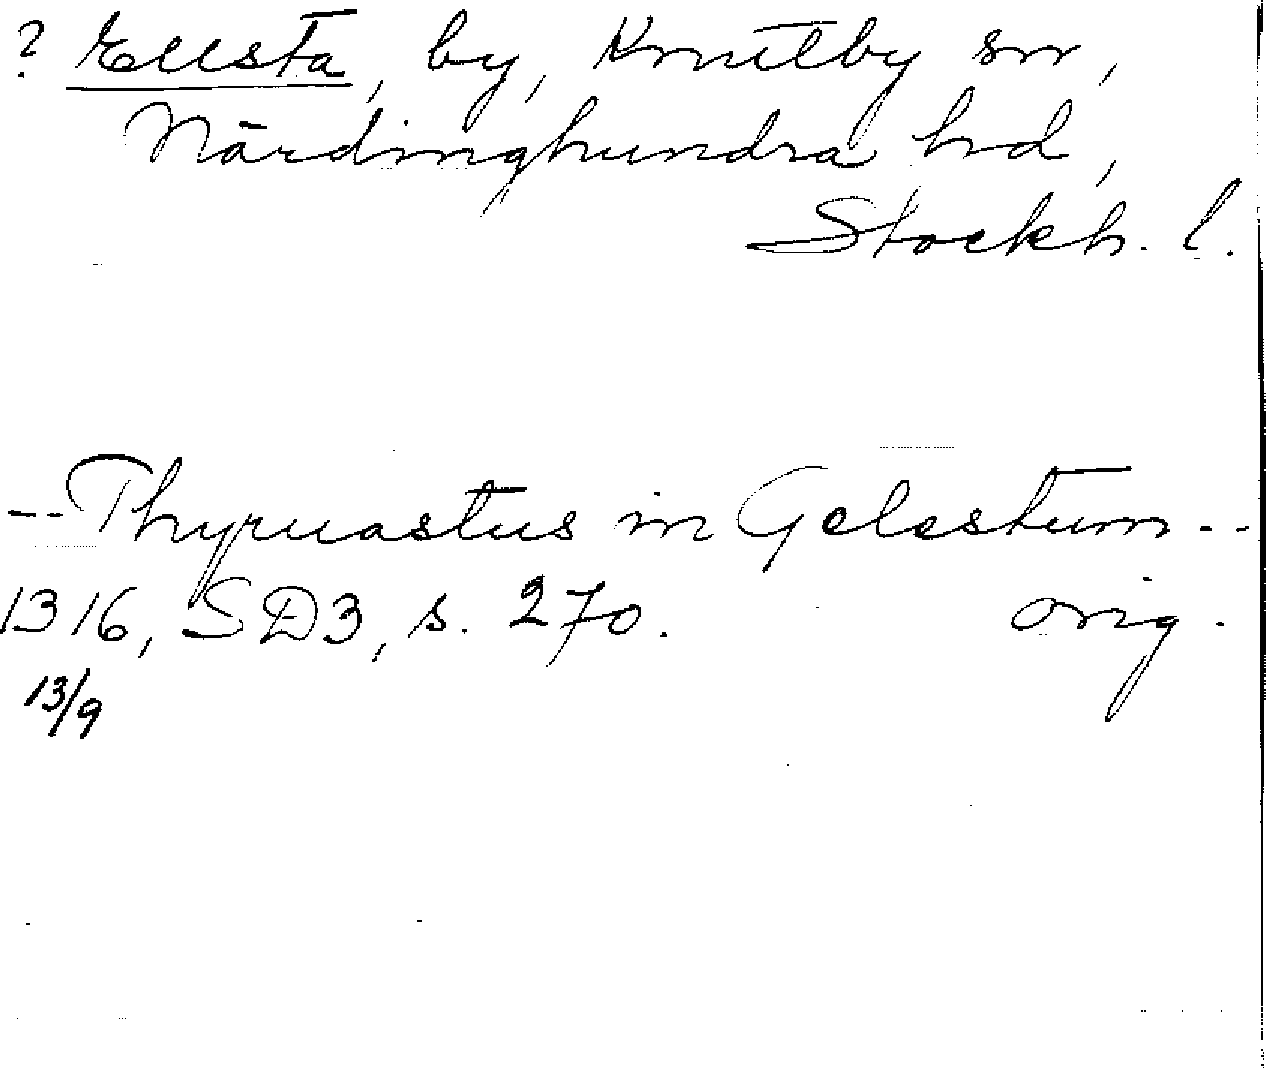 ? Ellsta, by, Knutby sn,
Närdinghundra hd,
Stockh. l.
-- Thyruastus in Gelestum --
1316, SD3, s. 270. orig.
13/9